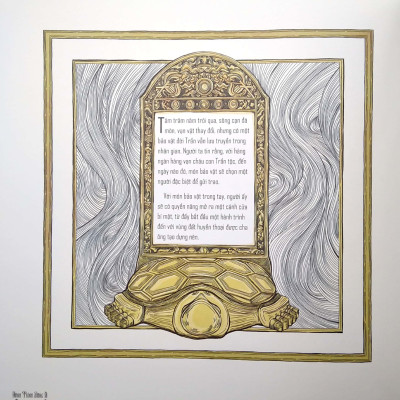 Tám trăm năm trôi qua, sông cạn đá
mòn, vạn vật thay đổi, nhưng có một
báu vật đời Trần vẫn lưu truyền trong
nhân gian. Người ta tin rằng, với hàng
ngàn hàng vạn cháu con Trần tộc, đến
ngày nào đó, món báu vật sẽ chọn một
người đặc biệt để gửi trao.
Với món báu vật trong tay, người ấy
sẽ có quyền năng mở ra một cánh cửa
bí mật, từ đấy bắt đầu một hành trình
đến với vùng đất huyền thoại được cha
ông tạo dựng nên.